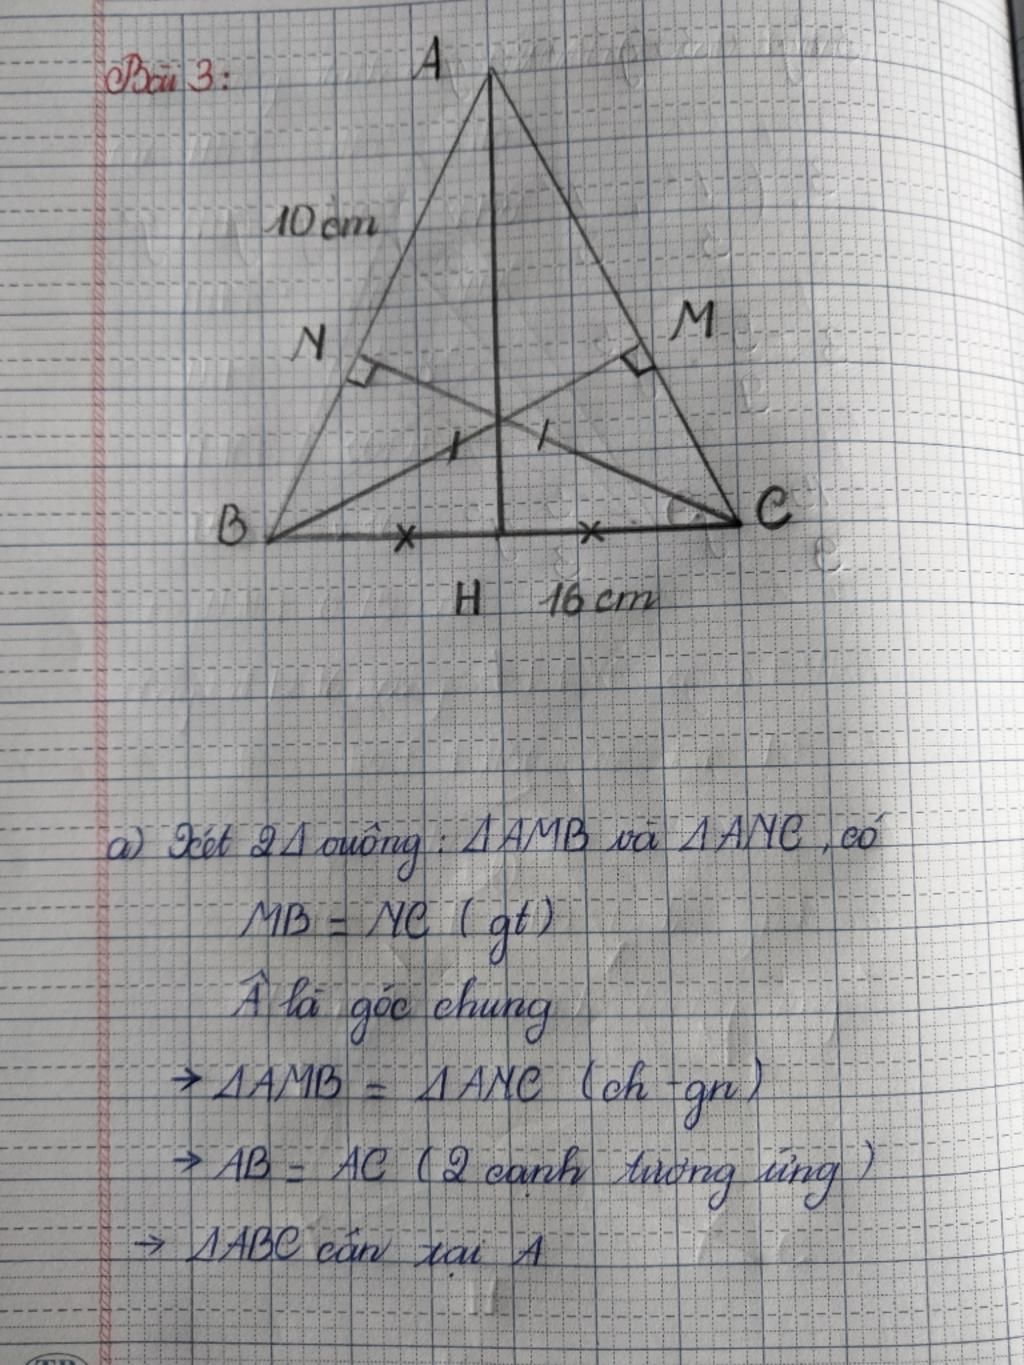 Bài 3:
A
10 cm
N
M
B
C
H
16 cm
a) Xét 2Δ vuông: ΔAMB và ΔANC, có
MB = NC (gt)
Â là góc chung
→ ΔAMB = ΔANC (ch-gn)
→ AB = AC (2 cạnh tương ứng)
→ ΔABC cân tại A